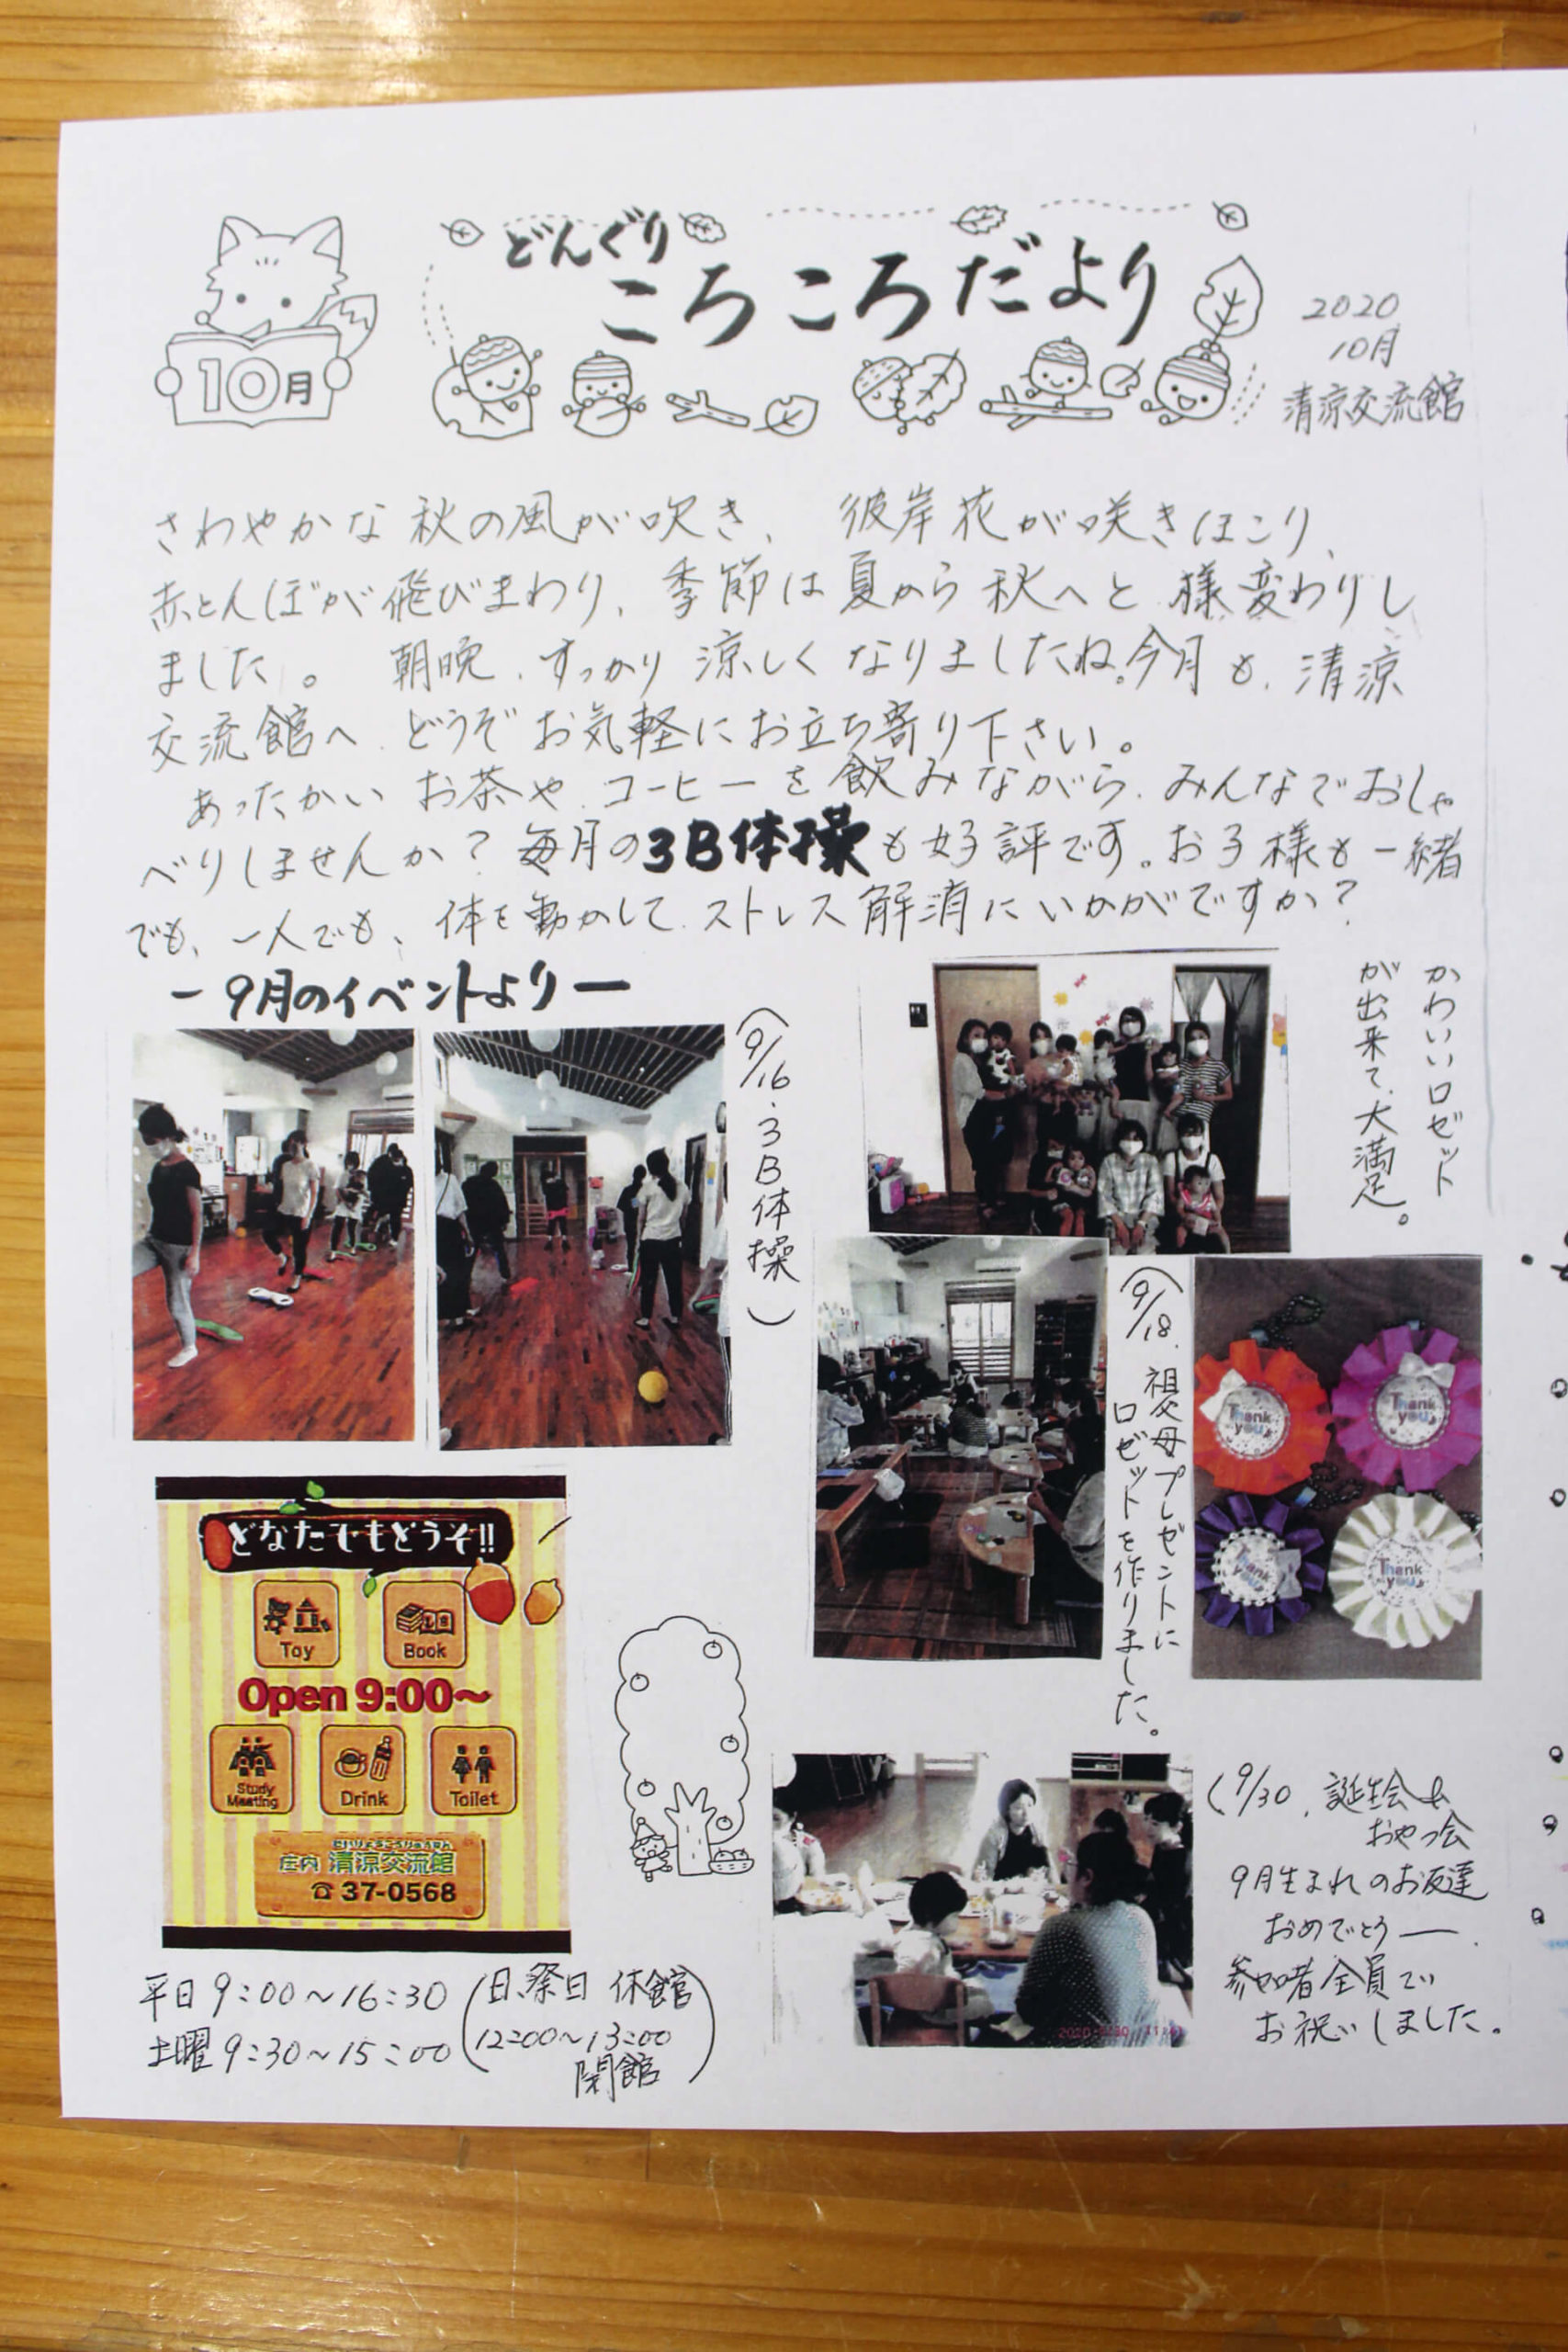 10月
どんぐり
ころころだより
2020
10月
清涼交流館
さわやかな秋の風が吹き、彼岸花が咲きほこり、
赤とんぼが飛びまわり、季節は夏から秋へと様変わりし
ました。朝晩、すっかり涼しくなりましたね。今月も、清涼
交流館へ、どうぞお気軽にお立ち寄り下さい。
あったかいお茶や、コーヒーを飲みながら、みんなでおしゃ
べりしませんか?毎月の3B体操も好評です。お子様も一緒
でも、一人でも、体を動かして、ストレス解消にいかがですか?
ー9月のイベントよりー
(9/16.3B体操)
かわいいロゼット
が出来て、大満足。
(9/18.祖父母プレゼントに
ロゼットを作りました。
Thank you
Thank you
Thank you
Thank you
どなたでもどうぞ!!
Toy
Book
Open 9:00〜
Study Meeting
Drink
Toilet
せいりょうこうりゅうかん
庄内 清涼交流館
☎37-0568
(9/30.誕生会&
おやつ会
9月生まれのお友達
おめでとうー.
参加者全員で
お祝いしました。
平日 9:00〜16:30(日、祭日 休館
土曜 9:30〜15:00 12:00〜13:00
閉館)